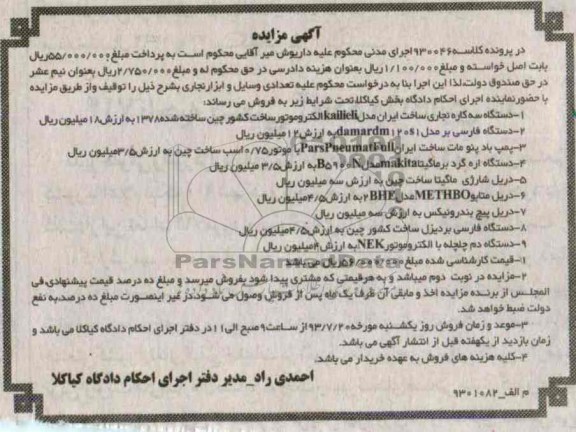 آگهی مزایده
در پرونده کلاسه ۹۳۰۰۴۶ اجرای مدنی محکوم علیه داریوش میر آقایی محکوم است به پرداخت مبلغ ۵۵/۰۰۰/۰۰۰ ریال
بابت اصل خواسته و مبلغ ۱/۱۰۰/۰۰۰ ریال بعنوان هزینه دادرسی در حق محکوم له و مبلغ ۲/۷۵۰/۰۰۰ ریال بعنوان نیم عشر
در حق صندوق دولت.لذا این اجرا بنا به درخواست محکوم علیه تعدادی وسایل و ابزار نجاری بشرح ذیل را توقیف و از طریق مزایده
با حضور نماینده اجرای احکام دادگاه بخش کیاکلا تحت شرایط زیر به فروش می رساند:
۱-دستگاه سه کاره نجاری ساخت ایران مدل kaili الکتروموتور ساخت کشور چین ساخته شده ۱۳۷۸ به ارزش ۱۸ میلیون ریال
۲-دستگاه فارسی بر مدل damardm 120s1 به ارزش ۱۲ میلیون ریال
۳-پمپ باد پنو مات ساخت ایران ParsPneumatFull با موتور ۰/۷۵ اسب ساخت چین به ارزش ۳/۵ میلیون ریال
۴-دستگاه اره گرد بر ماگیتا makita مدل به ارزش ۳/۵ میلیون ریال
۵-دریل شارژی ماگیتا ساخت چین به ارزش سه میلیون ریال
۶-دریل متابو METHBO مدل 2BHE به ارزش ۴/۵ میلیون ریال
۷-دریل پیچ بندرونیکس به ارزش سه میلیون ریال
۸-دستگاه فارسی بر دیزل ساخت کشور چین به ارزش ۴/۵ میلیون ریال
۹-دستگاه دم چلچله با الکتروموتور NEK به ارزش ۴ میلیون ریال
۱-قیمت کارشناسی شده مبلغ ریال می باشد
۲-مزایده در نوبت دوم میباشد و به هر قیمتی که مشتری پیدا شود بفروش میرسد و مبلغ ده درصد قیمت پیشنهادی، فی
المجلس از برنده مزایده اخذ و مابقی آن ظرف یک ماه پس از فروش وصول می شود.در غیر اینصورت مبلغ ده درصد به نفع
دولت ضبط خواهد شد.
۳-موعد و زمان فروش روز یکشنبه مورخه ۹۳/۷/۲۰ از ساعت ۹ صبح الی ۱۱ در دفتر اجرای احکام دادگاه کیاکلا می باشد و
زمان بازدید از یکهفته قبل از انتشار آگهی می باشد.
۴-کلیه هزینه های فروش به عهده خریدار می باشد.
احمدی راد_مدیر دفتر اجرای احکام دادگاه کیاکلا
م الف_۹۳۰۱۰۸۲